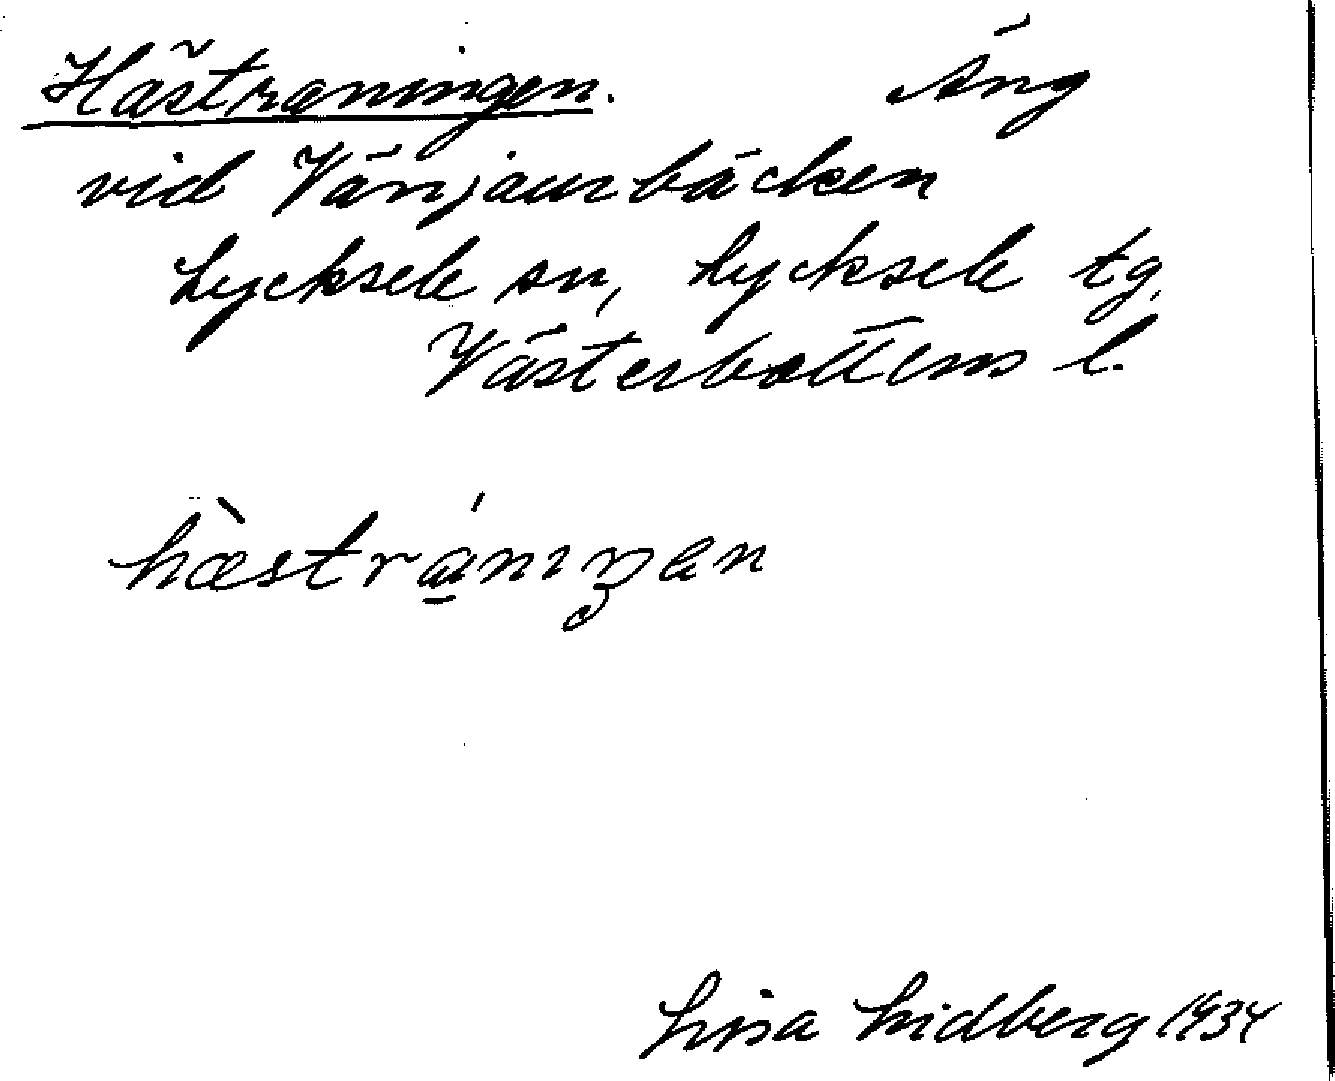 Hästraningen. Äng
vid Vänjaurbäcken
Lycksele sn, Lycksele tg.
Västerbottens l.
hæ̀strániŋen
Lisa Lidberg 1934